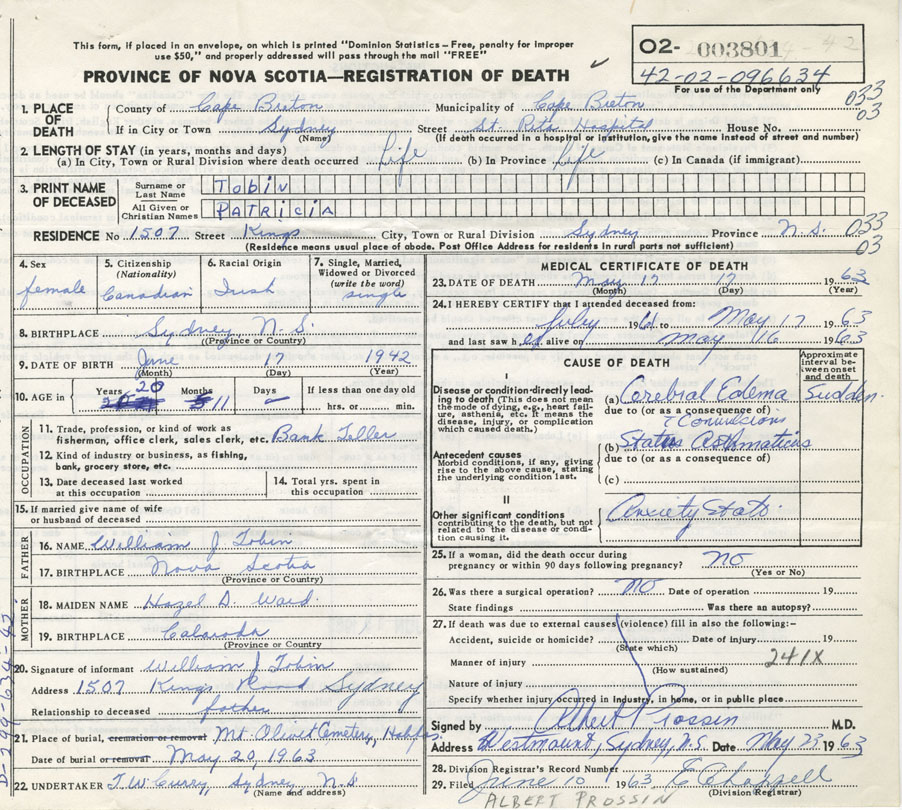 This form, if placed in an envelope, on which is printed "Dominion Statistics – Free, penalty for improper
use $50," and properly addressed will pass through the mail "FREE"
PROVINCE OF NOVA SCOTIA—REGISTRATION OF DEATH
02- 003801
42-02-096634
For use of the Department only
033
03
1. PLACE OF DEATH
County of Cape Breton Municipality of Cape Breton
If in City or Town Sydney Street St. Rita Hospital House No.
(Name) (If death occurred in hospital or institution, give the name instead of street and number)
2. LENGTH OF STAY (in years, months and days)
(a) In City, Town or Rural Division where death occurred Life (b) In Province Life (c) In Canada (if immigrant)
3. PRINT NAME OF DECEASED
Surname or Last Name TOBIN
All Given or Christian Names PATRICIA
RESIDENCE No 1507 Street Kings City, Town or Rural Division Sydney Province N.S. 033
03
(Residence means usual place of abode. Post Office Address for residents in rural parts not sufficient)
4. Sex
female
5. Citizenship
(Nationality)
Canadian
6. Racial Origin
Irish
7. Single, Married,
Widowed or Divorced
(write the word)
single
8. BIRTHPLACE Sydney N.S.
(Province or Country)
9. DATE OF BIRTH June 17 1942
(Month) (Day) (Year)
10. AGE in Years 20 Months 11 Days If less than one day old
hrs. or min.
OCCUPATION
11. Trade, profession, or kind of work as
fisherman, office clerk, sales clerk, etc. Bank Teller
12. Kind of industry or business, as fishing,
bank, grocery store, etc.
13. Date deceased last worked
at this occupation
14. Total yrs. spent in
this occupation
15. If married give name of wife
or husband of deceased
FATHER
16. NAME William J Tobin
17. BIRTHPLACE Nova Scotia
(Province or Country)
MOTHER
18. MAIDEN NAME Hazel D. Ward
19. BIRTHPLACE Calarado
(Province or Country)
20. Signature of informant William J Tobin
Address 1507 Kings Road Sydney
Relationship to deceased father
21. Place of burial, cremation or removal Mt. Olivet Cemetery, Halifax
Date of burial or removal May 20, 1963
22. UNDERTAKER T.W. Curry, Sydney N.S
(Name and address)
MEDICAL CERTIFICATE OF DEATH
23. DATE OF DEATH May 17 17 1963
(Month) (Day) (Year)
24. I HEREBY CERTIFY that I attended deceased from:
July 1961 to May 17 1963
and last saw her alive on May 16 1963
CAUSE OF DEATH
Approximate interval between onset and death
I
Disease or condition directly leading to death (This does not mean the mode of dying, e.g., heart failure, asthenia, etc. It means the disease, injury, or complication which caused death.)
(a) Cerebral Edema Sudden
due to (or as a consequence of)
Convulsions
Antecedent causes
Morbid conditions, if any, giving rise to the above cause, stating the underlying condition last.
(b) Status Asthmaticus
due to (or as a consequence of)
(c)
II
Other significant conditions
contributing to the death, but not related to the disease or condition causing it.
Anxiety State
25. If a woman, did the death occur during
pregnancy or within 90 days following pregnancy? NO
(Yes or No)
26. Was there a surgical operation? NO Date of operation 19
State findings Was there an autopsy?
27. If death was due to external causes (violence) fill in also the following:–
Accident, suicide or homicide? Date of injury 19
(State which)
241X
Manner of injury
(How sustained)
Nature of injury
Specify whether injury occurred in industry, in home, or in public place
Signed by Albert Prossin M.D.
Address Westmount, Sydney, N.S. Date May 23 1963
28. Division Registrar's Record Number
29. Filed June 10 1963
(Division Registrar)
ALBERT PROSSIN